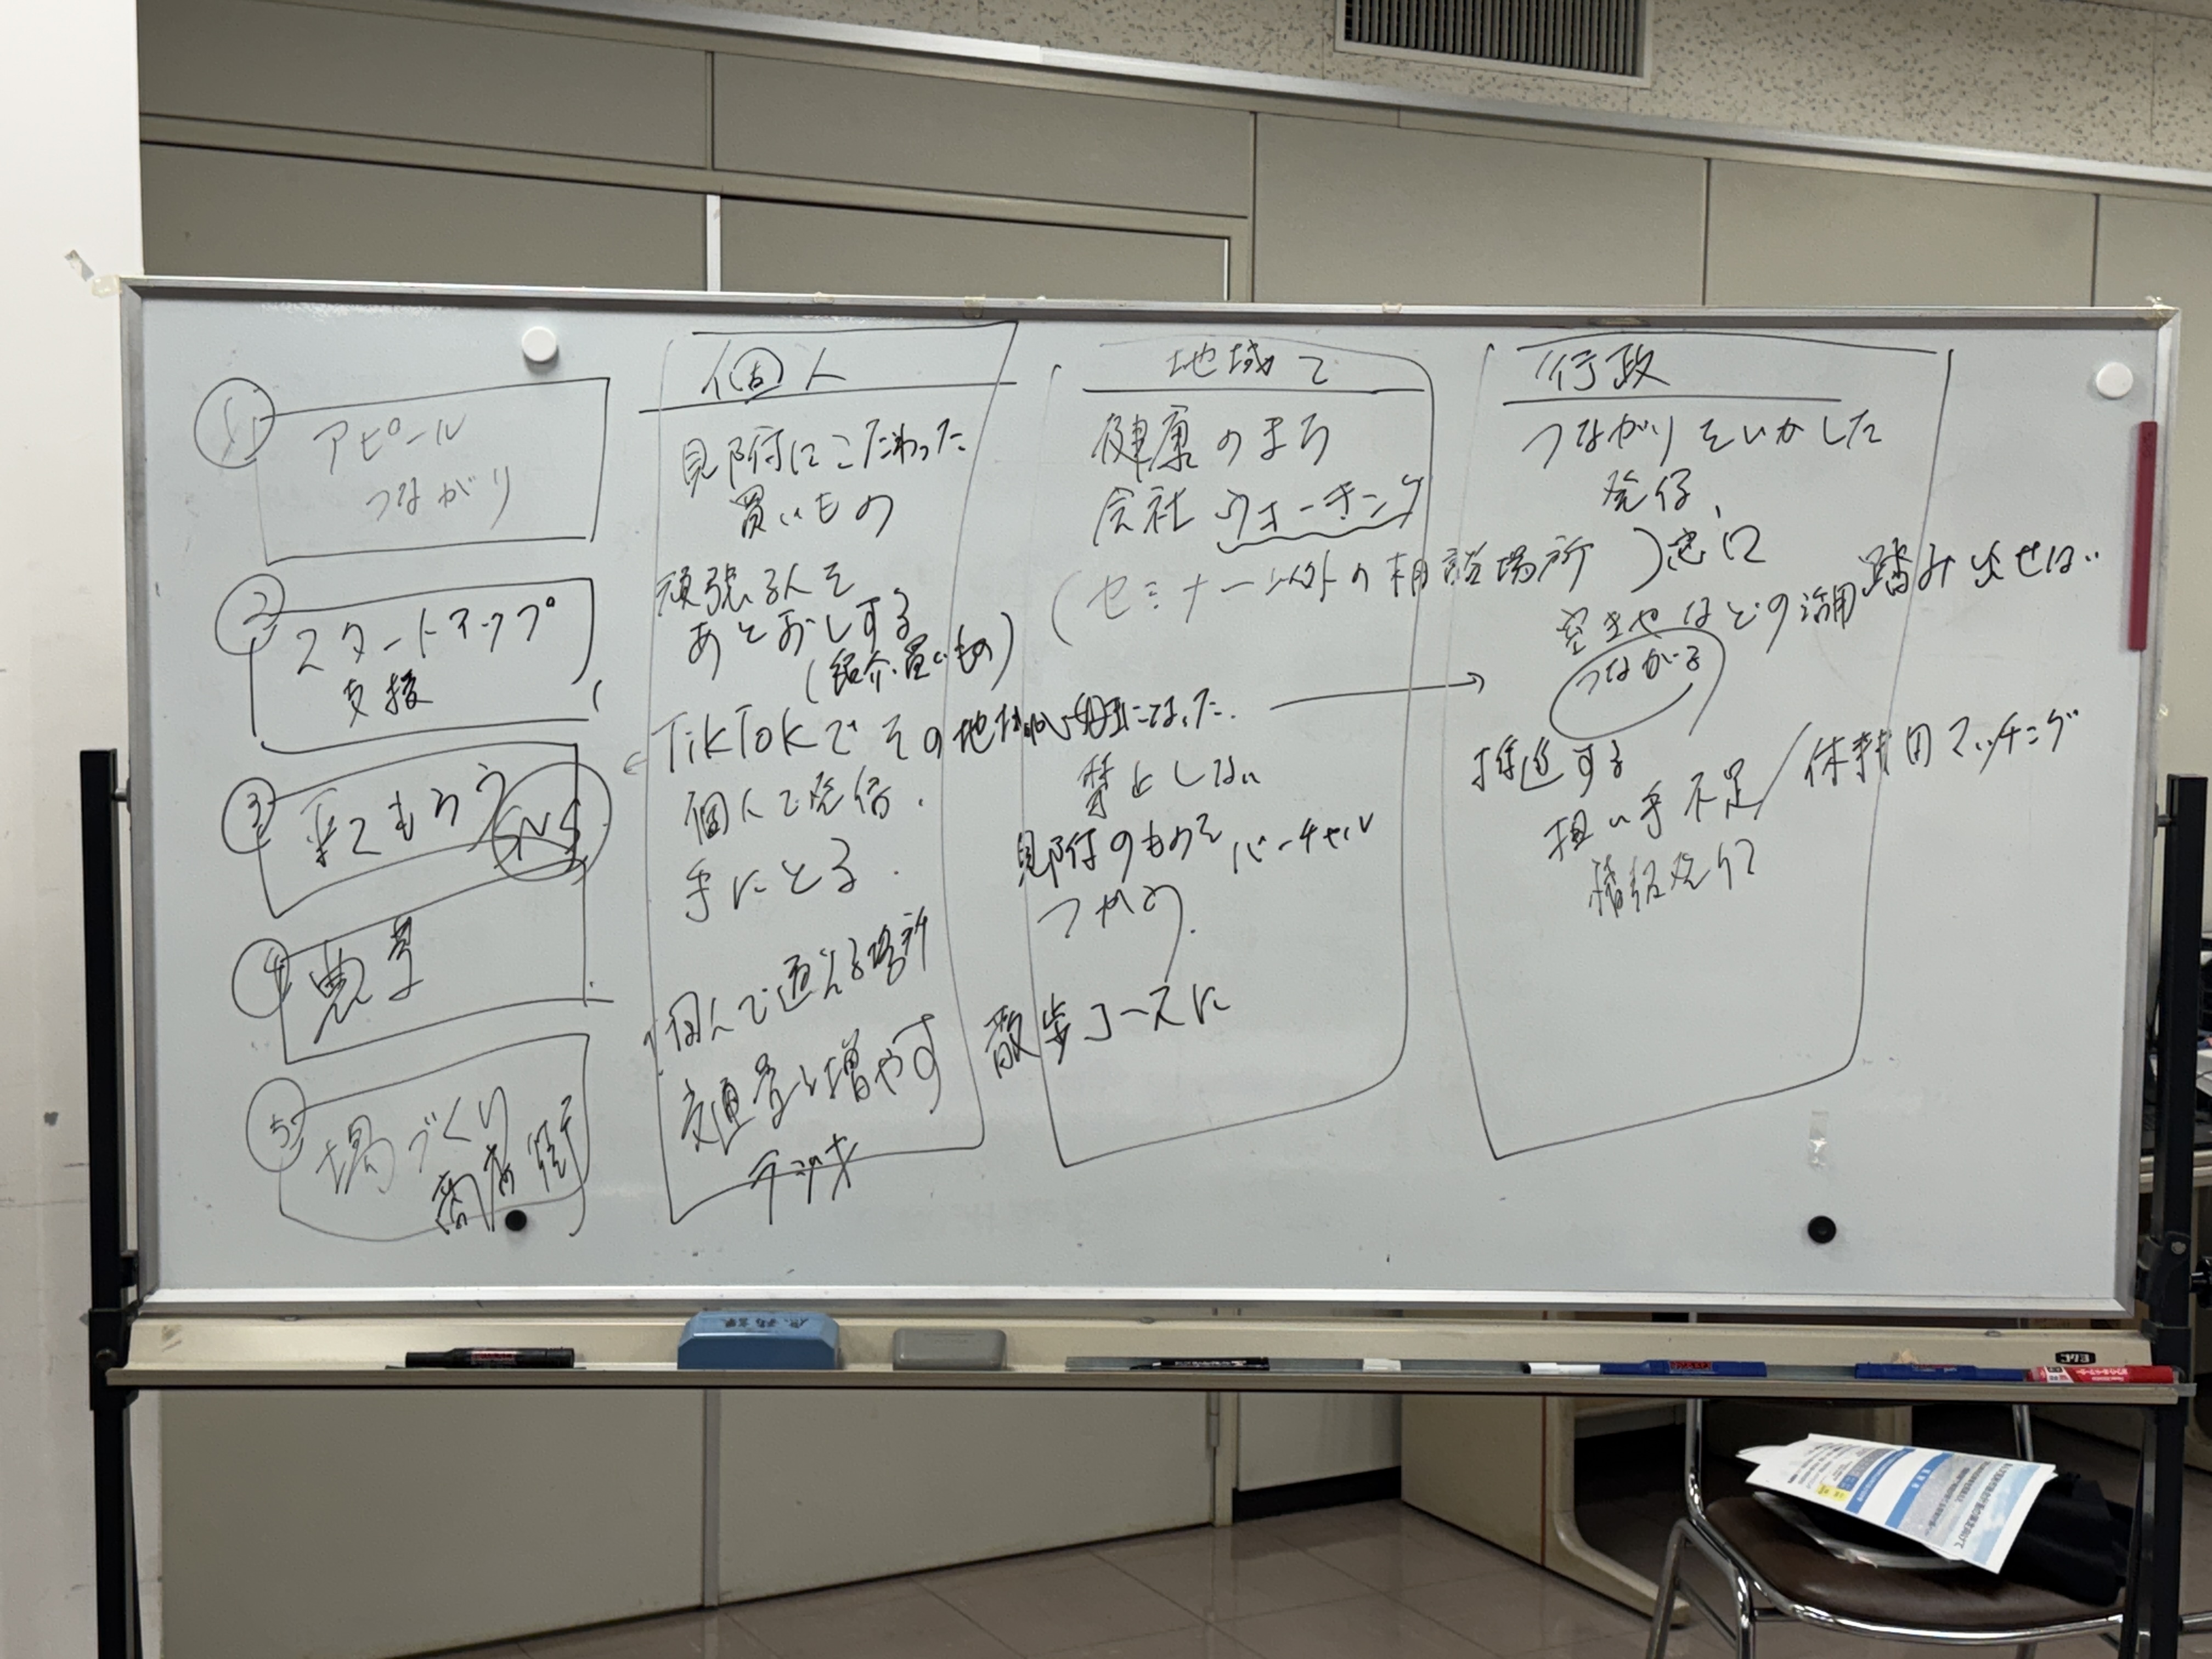 アピール
つながり
②
スタートアップ
支援
③
来てもらう
SNS
④
農業
⑤
場づくり
商店街
個人
見附にこだわった
買いもの
頑張る人を
あとおしする
(紹介・買いもの)
TikTokでその地域が
になった.
個人で発信.
手にとる.
個人で通える場所
交通量を増やす
地域で
健康のまち
会社ウォーキング
(セミナー以外の相談場所)
禁止しない
見附のものを バーチャル
散歩コースに
行政
つながりをいかした
発信、
空き地などの活用
踏み出せない
つながる
推進する
担い手不足/休耕田マッチング
情報発信